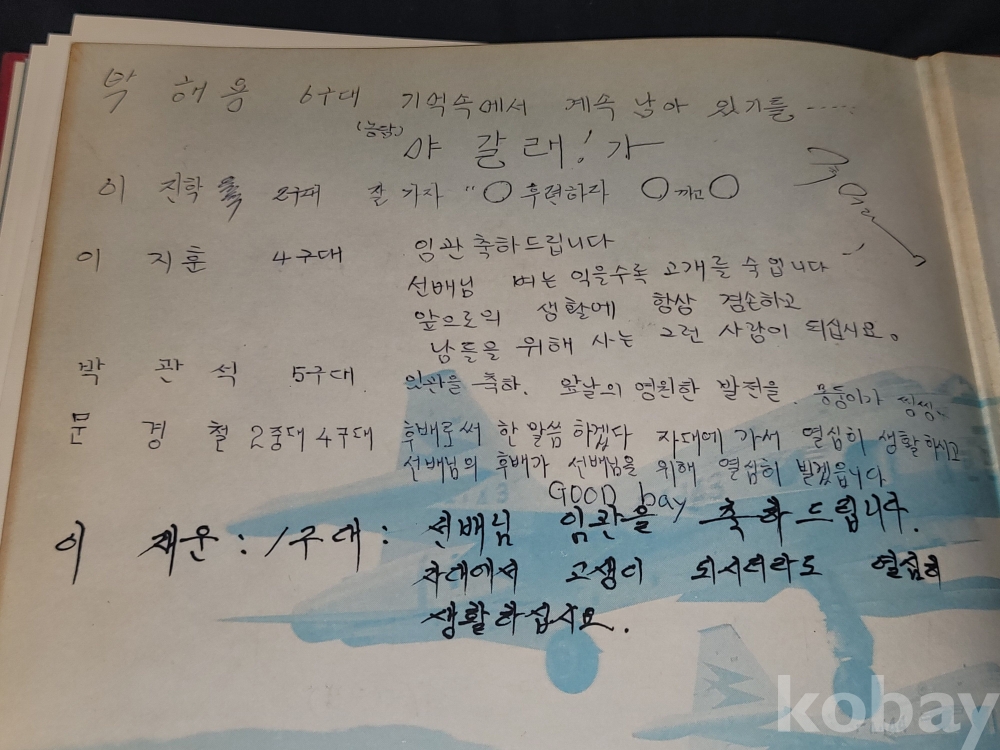 박 해용 6구대 기억속에서 계속 남아 있기를......
(농담) 야 갈래! 가
이 진학 2구대 잘 가자 "○ 훈련하라 ○까고○
이 지훈 4구대 임관 축하드립니다
선배님 벼는 익을수록 고개를 숙입니다
앞으로의 생활에 항상 겸손하고
남들을 위해 사는 그런 사람이 되십시요。
박 관석 5구대 임관을 축하. 앞날의 영원한 발전을. 몽둥이가 씽씽~
문 경철 2중대 4구대 후배로써 한 말씀 하겠다 자대에 가서 열심히 생활하시고
선배님의 후배가 선배님을 위해 열심히 빌겠읍니다
GOOD bay
이 재운: 1구대: 선배님 임관을 축하드립니다.
자대에서 고생이 되시더라도 열심히
생활하십시요.
kobay